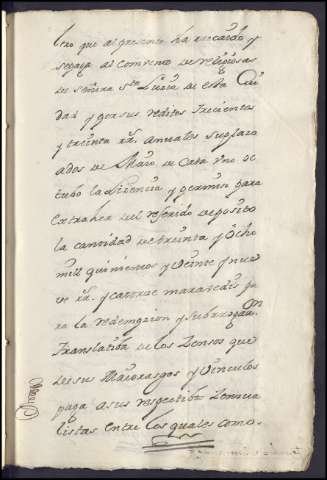 lero que al presente ha recaido y
se paga al convento de religiosas
de señora Sta Lucia de esta Ciu
dad y por sus reditos trecientos
y treinta rs. anuales su plazo
a dos de Maio de cada uno ob
tubo la Licencia y permiso para
extraher del referido deposito
la cantidad de treinta y ocho
mil quinientos y veinte y nue
ve rs. y catorce maravedis pa
ra la redempcion y Subrrogaon
translacion de los Zensos que
de sus Maiorazgos y Vinculos
paga a sus respectibos Zensua
listas entre los quales como